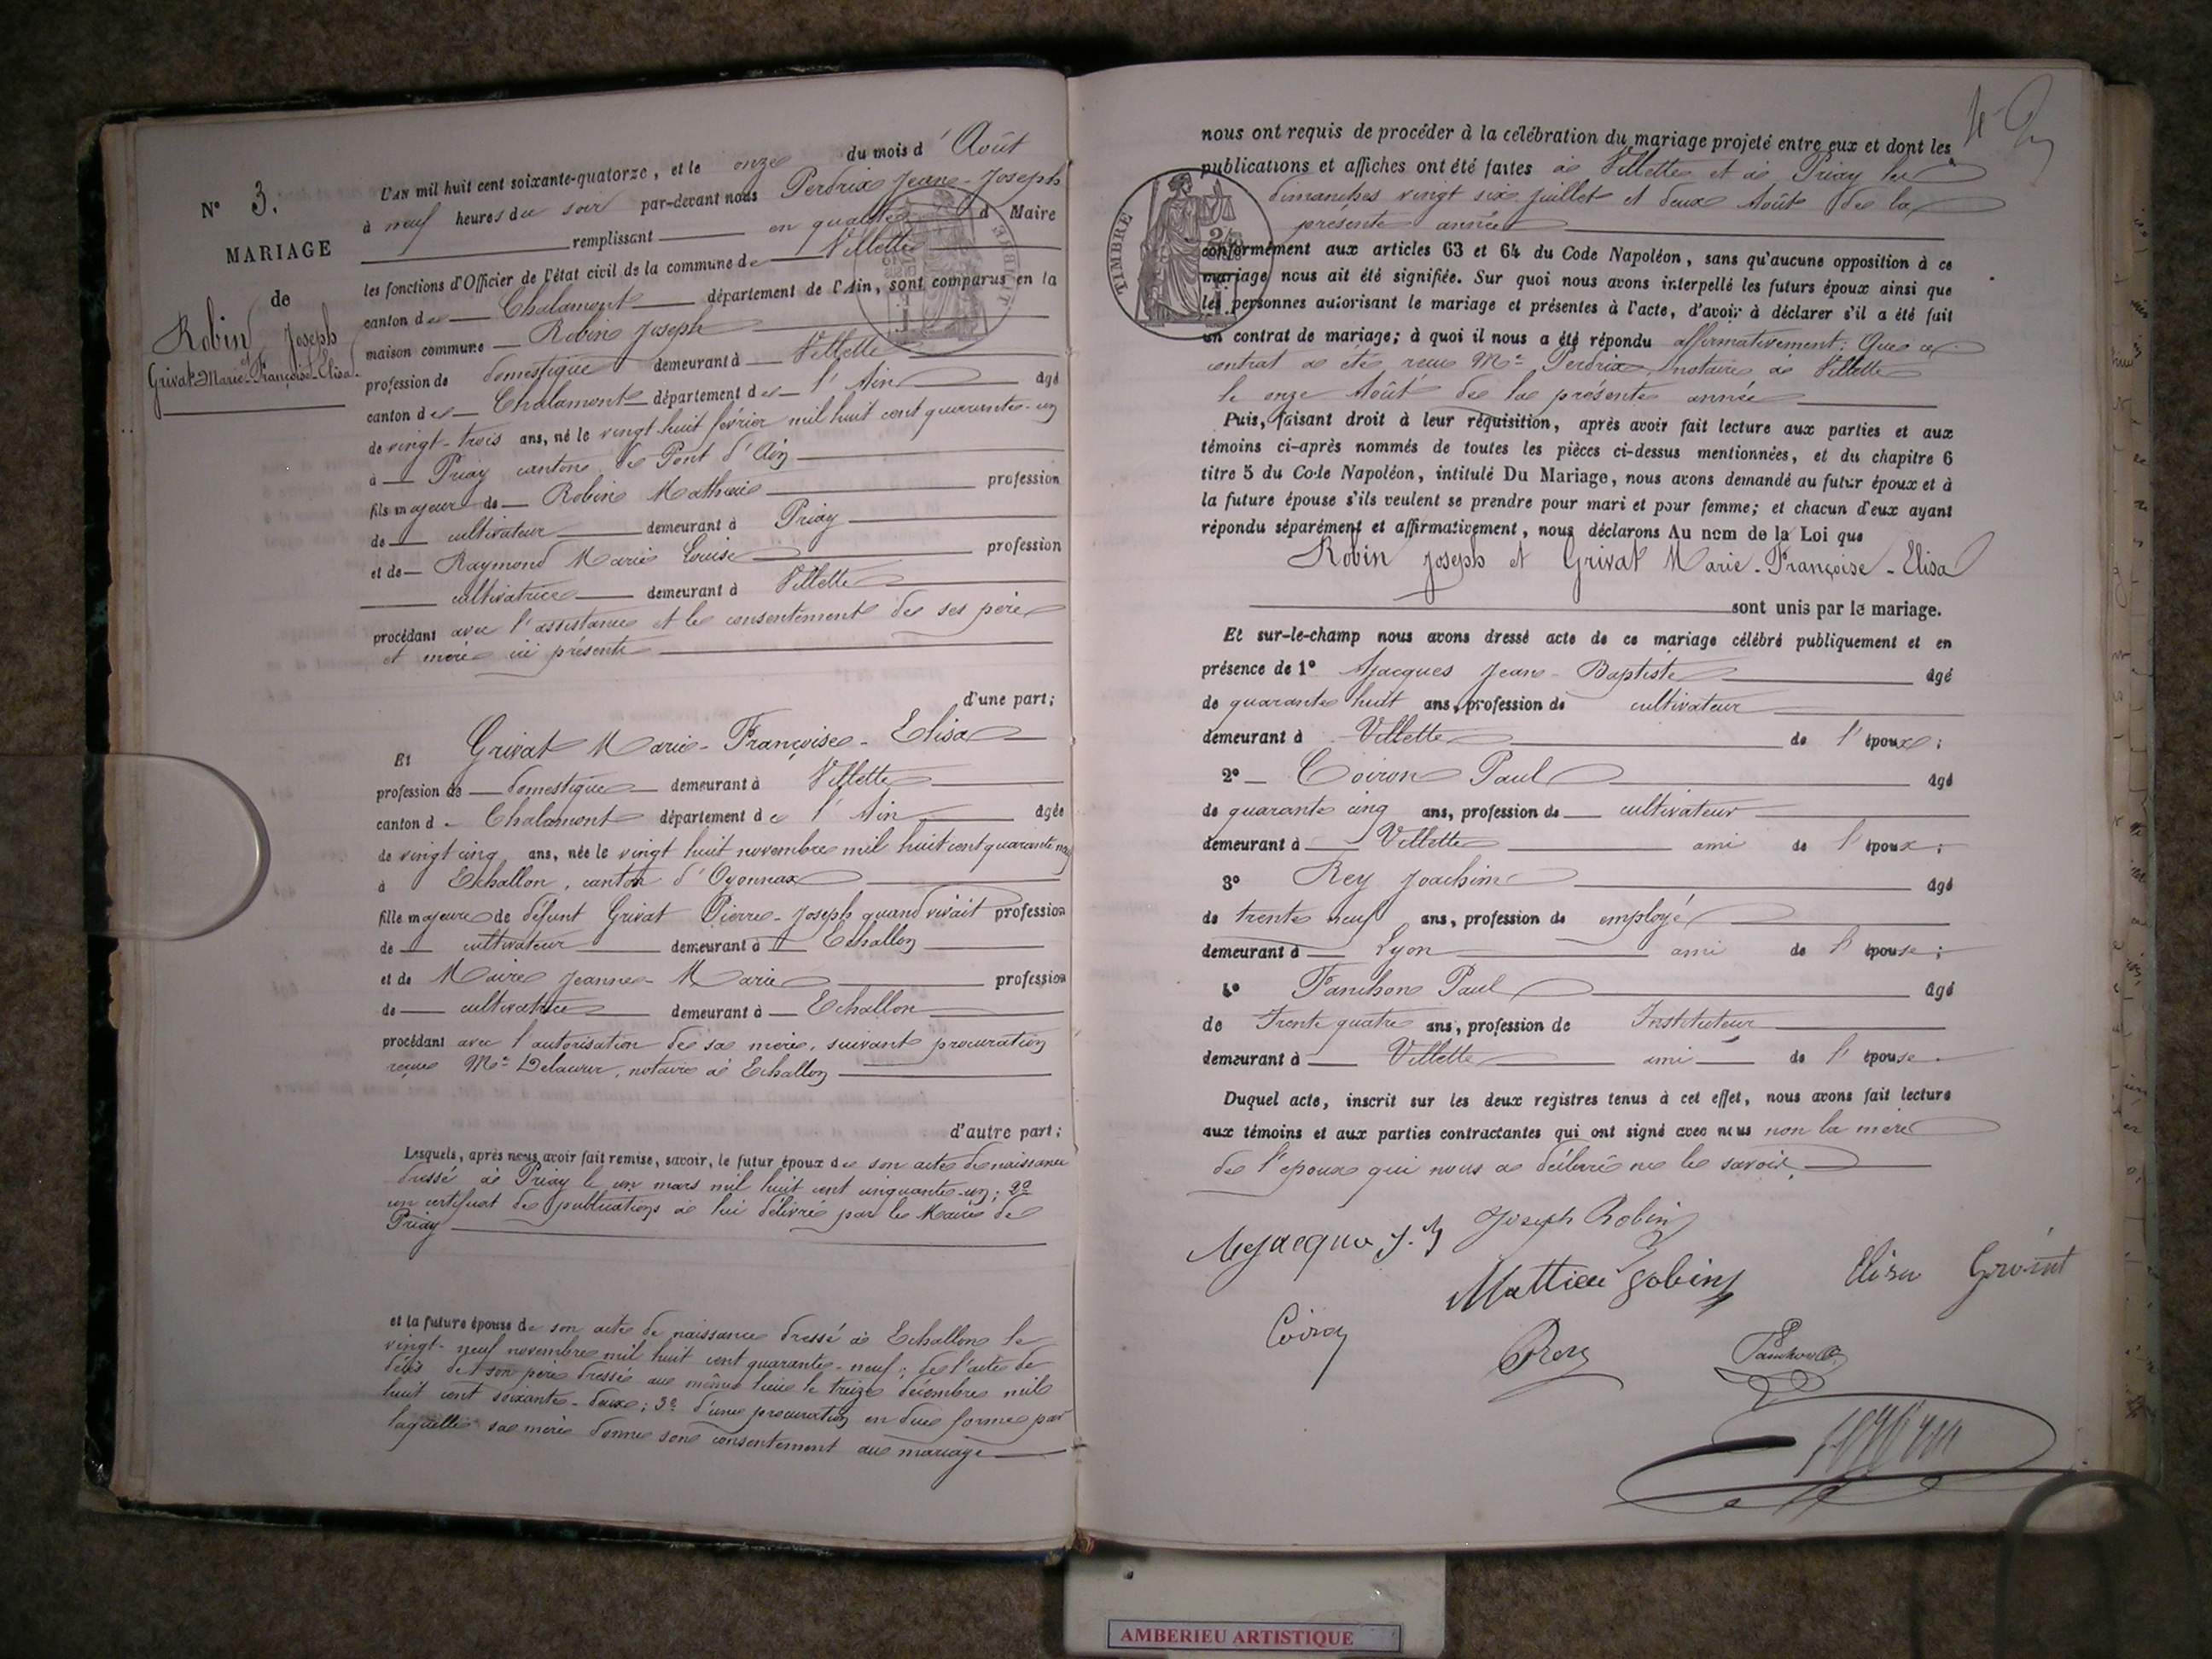 N° 3.
MARIAGE
de
Robin Joseph
et
Grivat Marie-Françoise-Elisa.
L'AN mil huit cent soixante-quatorze, et le onze du mois d'Août
à neuf heures du soir par-devant nous Perdrix Jean-Joseph
remplissant en qualité d Maire
les fonctions d'Officier de l'état civil de la commune de Villette
canton de Chalamont département de l'Ain, sont comparus en la
maison commune Robin Joseph
profession de domestique demeurant à Villette
canton de Chalamont département de l'Ain âgé
de vingt-trois ans, né le vingt huit février mil huit cent quarante-un
à Priay canton de Pont d'Ain
fils majeur de Robin Mathieu profession
de cultivateur demeurant à Priay
et de Raymond Marie Louise profession
cultivatrice demeurant à Villette
procédant avec l'assistance et le consentement de ses père
et mère ici présents
d'une part;
Et Grivat Marie-Françoise-Elisa
profession de domestique demeurant à Villette
canton de Chalamont département de l'Ain âgée
de vingt cinq ans, née le vingt huit novembre mil huit cent quarante neuf
à Echallon, canton d'Oyonnax
fille majeure de défunt Grivat Pierre-Joseph quand vivait profession
de cultivateur demeurant à Echallon
et de Maire Jeanne-Marie profession
de cultivatrice demeurant à Echallon
procédant avec l'autorisation de sa mère, suivant procuration
reçue Me notaire à Echallon
d'autre part;
Lesquels, après nous avoir fait remise, savoir, le futur époux de son acte de naissance
dressé à Priay le un mars mil huit cent cinquante-un; 2°
un certificat de publications à lui délivré par le Maire de
Priay
et la future épouse de son acte de naissance dressé à Echallon le
vingt-neuf novembre mil huit cent quarante-neuf; de l'acte de
décès de son père dressé au même lieu le treize décembre mil
huit cent soixante-deux; 3° d'une procuration en due forme par
laquelle sa mère donne son consentement au mariage
nous ont requis de procéder à la célébration du mariage projeté entre eux et dont les
publications et affiches ont été faites à Villette et à Priay les
dimanches vingt six juillet et deux Août de la
présente année
TIMBRE
conformément aux articles 63 et 64 du Code Napoléon, sans qu'aucune opposition à ce
mariage nous ait été signifiée. Sur quoi nous avons interpellé les futurs époux ainsi que
les personnes autorisant le mariage et présentes à l'acte, d'avoir à déclarer s'il a été fait
un contrat de mariage; à quoi il nous a été répondu affirmativement: Que ce
contrat a été reçu Me Perdrix, notaire à Villette
le onze Août de la présente année
Puis, faisant droit à leur réquisition, après avoir fait lecture aux parties et aux
témoins ci-après nommés de toutes les pièces ci-dessus mentionnées, et du chapitre 6
titre 5 du Code Napoléon, intitulé Du Mariage, nous avons demandé au futur époux et à
la future épouse s'ils veulent se prendre pour mari et pour femme; et chacun d'eux ayant
répondu séparément et affirmativement, nous déclarons Au nom de la Loi que
Robin Joseph et Grivat Marie-Françoise-Elisa
sont unis par le mariage.
Et sur-le-champ nous avons dressé acte de ce mariage célébré publiquement et en
présence de 1° Mjacques Jean-Baptiste âgé
de quarante huit ans, profession de cultivateur
demeurant à Villette de l'époux;
2° Coiron Paul âgé
de quarante cinq ans, profession de cultivateur
demeurant à Villette ami de l'époux;
3° Rey Joachim âgé
de trente neuf ans, profession de employé
demeurant à Lyon ami de l'épouse;
4° Fanchon Paul âgé
de Trente quatre ans, profession de Instituteur
demeurant à Villette ami de l'épouse.
Duquel acte, inscrit sur les deux registres tenus à cet effet, nous avons fait lecture
aux témoins et aux parties contractantes qui ont signé avec nous non la mère
de l'époux qui nous a déclaré ne le savoir.
Joseph Robin
Mattieu Robin
Elisa Grivat
Coiron
Rey
Fanchon
AMBERIEU ARTISTIQUE